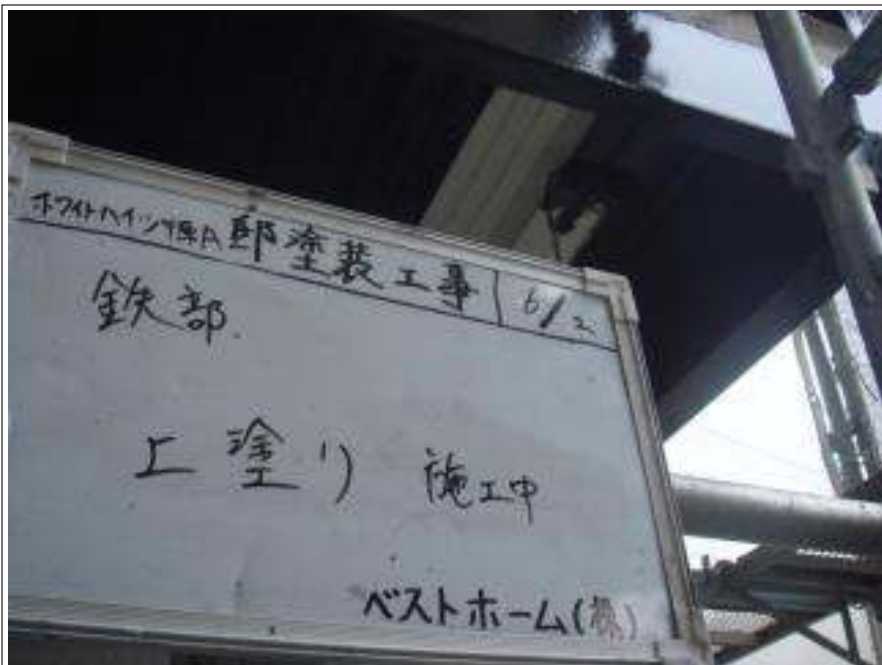 ホワイトハイツ原A 邸塗装工事 6/2
鉄部
上塗り 施工中
ベストホーム(株)